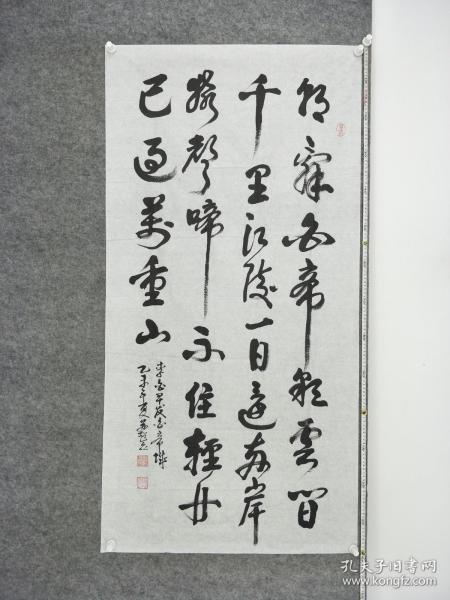 朝辭白帝彩雲間
千里江陵一日還兩岸
猿聲啼不住輕舟
已過萬重山
李白早發白帝城
乙未年夏
孔夫子旧书网
www.kongfz.com